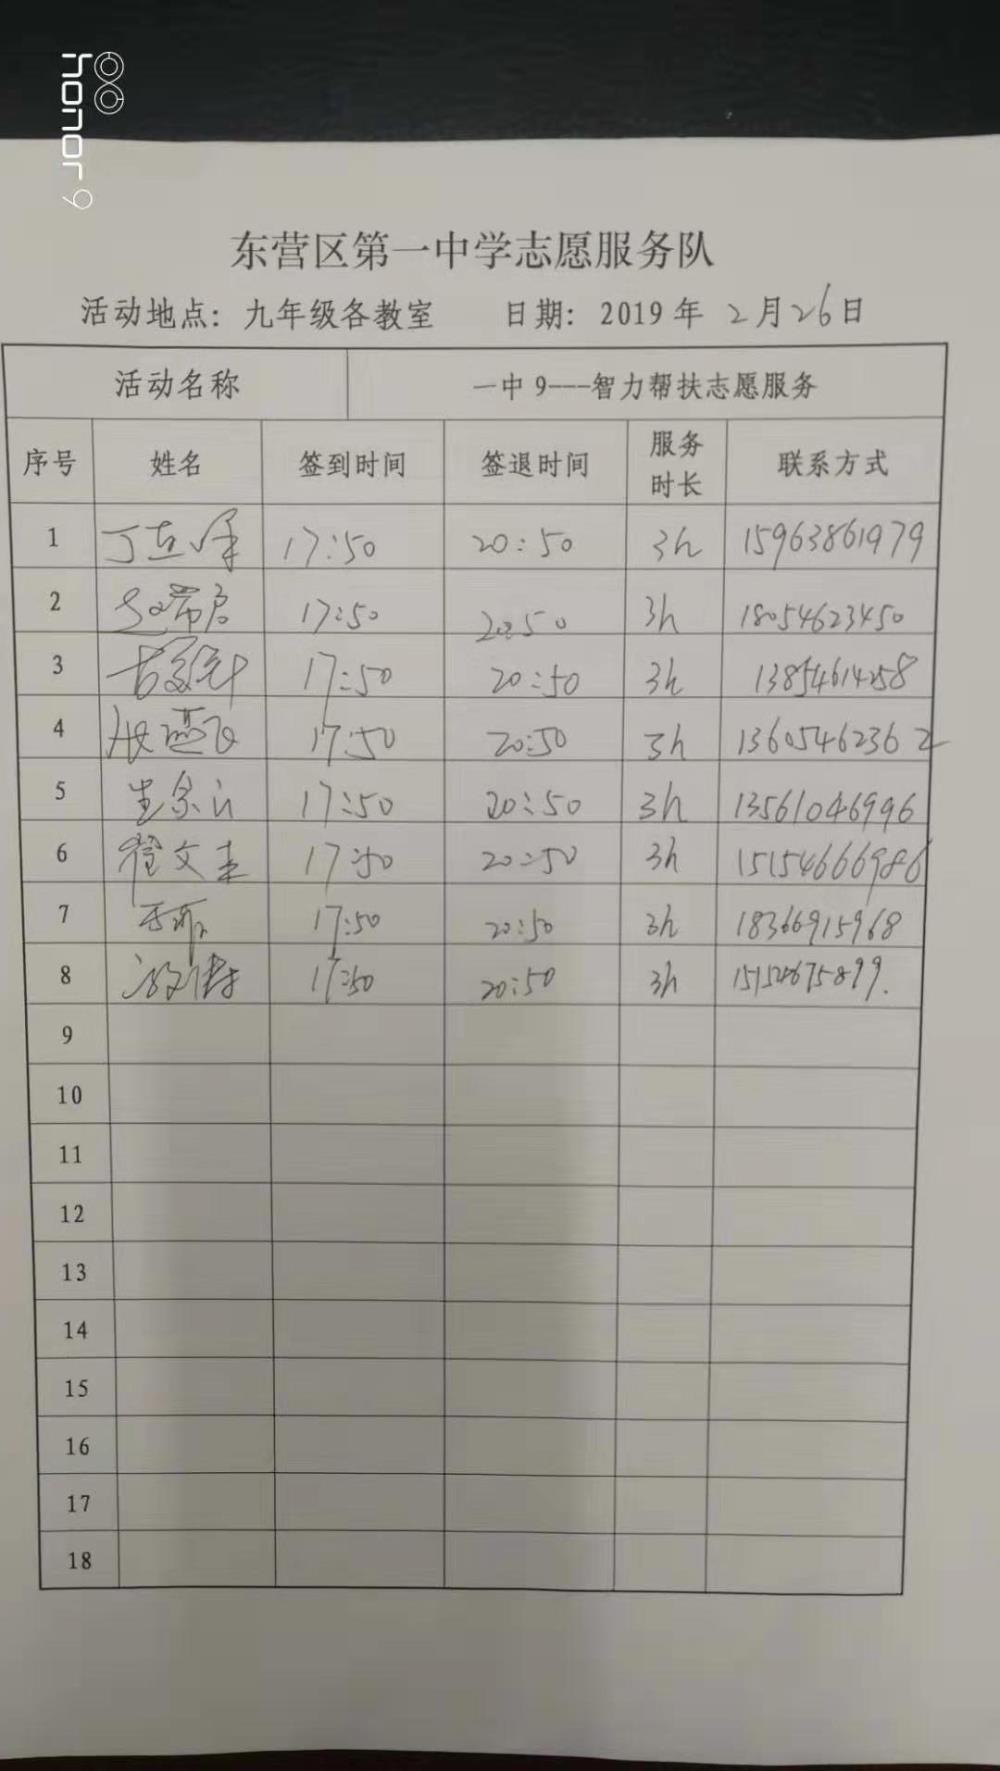 honor 9
东营区第一中学志愿服务队
活动地点：九年级各教室 日期：2019年 2月26日
活动名称 一中9---智力帮扶志愿服务
序号 姓名 签到时间 签退时间 服务时长 联系方式
1 17:50 20:50 3h 15963861979
2 17:50 20:50 3h 18054623450
3 17:50 20:50 3h 13854614258
4 17:50 20:50 3h 13605462362
5 17:50 20:50 3h 13561046996
6 17:50 20:50 3h 15154666986
7 17:50 20:50 3h 18366915968
8 17:50 20:50 3h
9
10
11
12
13
14
15
16
17
18